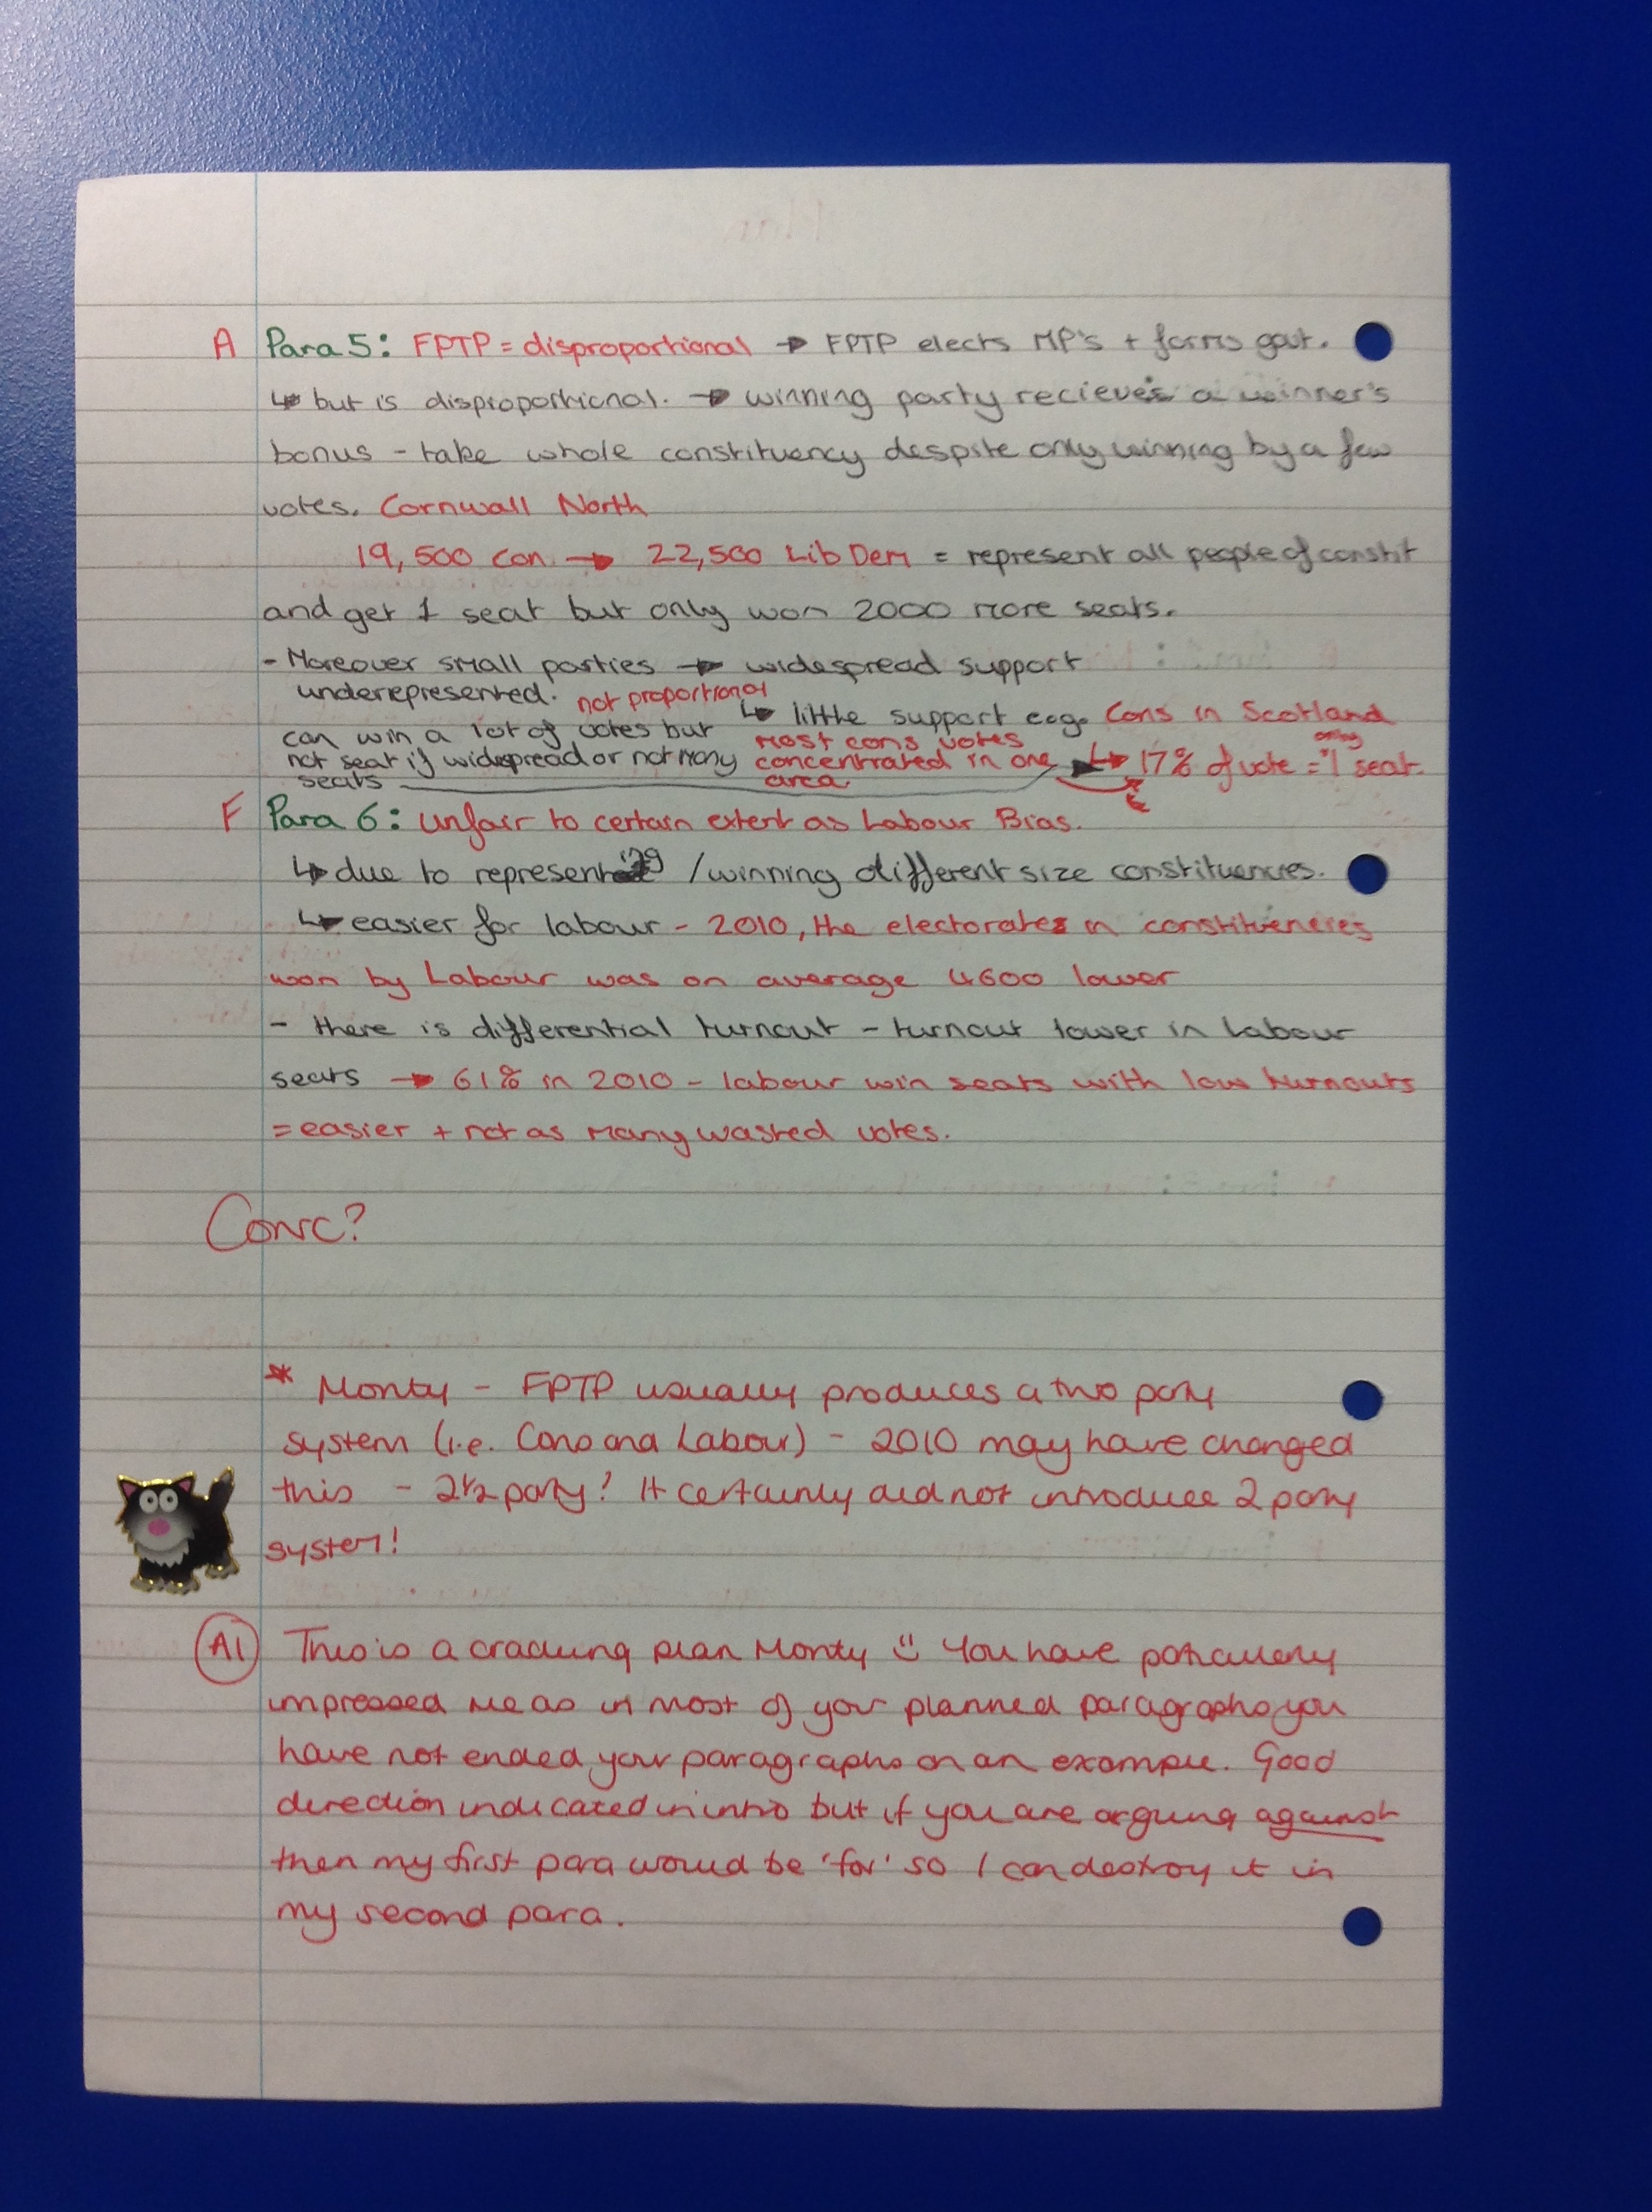 A Para 5: FPTP = disproportional → FPTP elects MP's + forms govt.
↳ but is disproportional. → winning party recieves a winner's
bonus - take whole constituency despite only winning by a few
votes. Cornwall North
19,500 con. → 22,500 Lib Dem = represent all people of constit
and get 1 seat but only won 2000 more seats.
- Moreover small parties → widespread support
underepresented. not proportional
↳ little support e.g. Cons in Scotland
can win a lot of votes but most cons votes only
not seat if widespread or not many concentrated in one ↳ 17% of vote = 1 seat.
seats area.
F Para 6: Unfair to certain extent as Labour Bias.
↳ due to representing / winning different size constituencies.
↳ easier for labour - 2010, the electorates in constituencies
won by Labour was on average 4600 lower
- there is differential turnout - turnout lower in Labour
seats → 61% in 2010 - labour win seats with low turnouts
= easier + not as many wasted votes.
Conc?
* Monty - FPTP usually produces a two party
system (i.e. Cons and Labour) - 2010 may have changed
this - 2½ party? It certainly did not introduce 2 party
system!
A1 This is a cracking plan Monty :) You have particularly
impressed me as in most of your planned paragraphs you
have not ended your paragraphs on an example. Good
direction indicated in intro but if you are arguing against
then my first para would be 'for' so I can destroy it in
my second para.